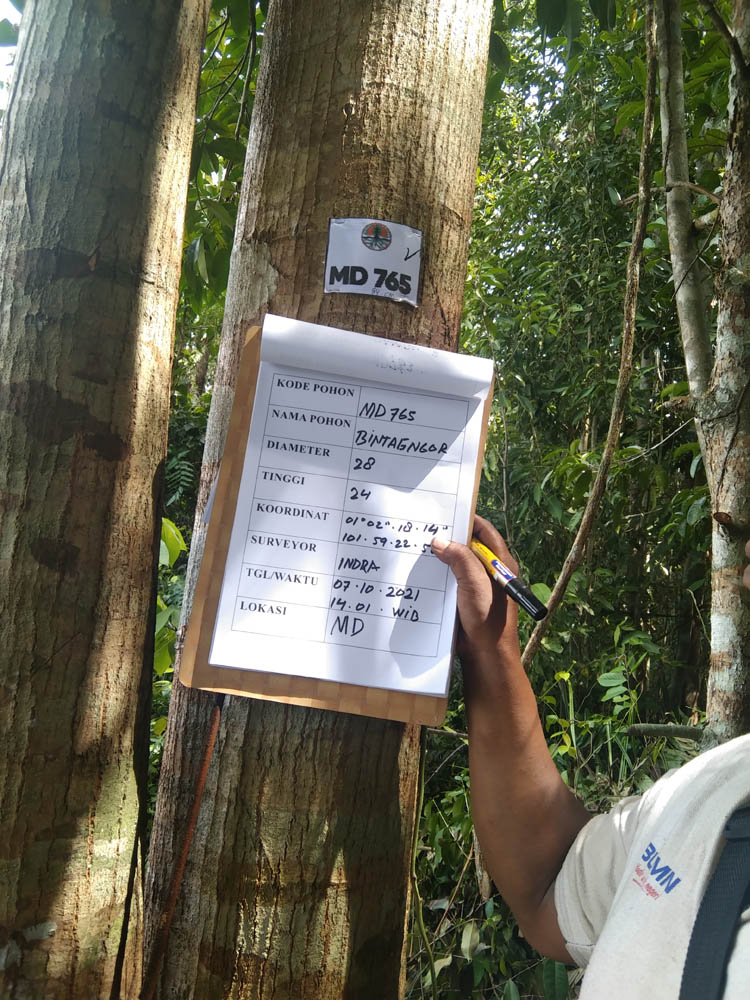 MD 765
KODE POHON MD765
NAMA POHON BINTAENGOR
DIAMETER 28
TINGGI 24
KOORDINAT 01°02".18.14"
101.59.22.5
SURVEYOR INDRA
TGL/WAKTU 07.10.2021
14.01. WIB
LOKASI MD
BUMN